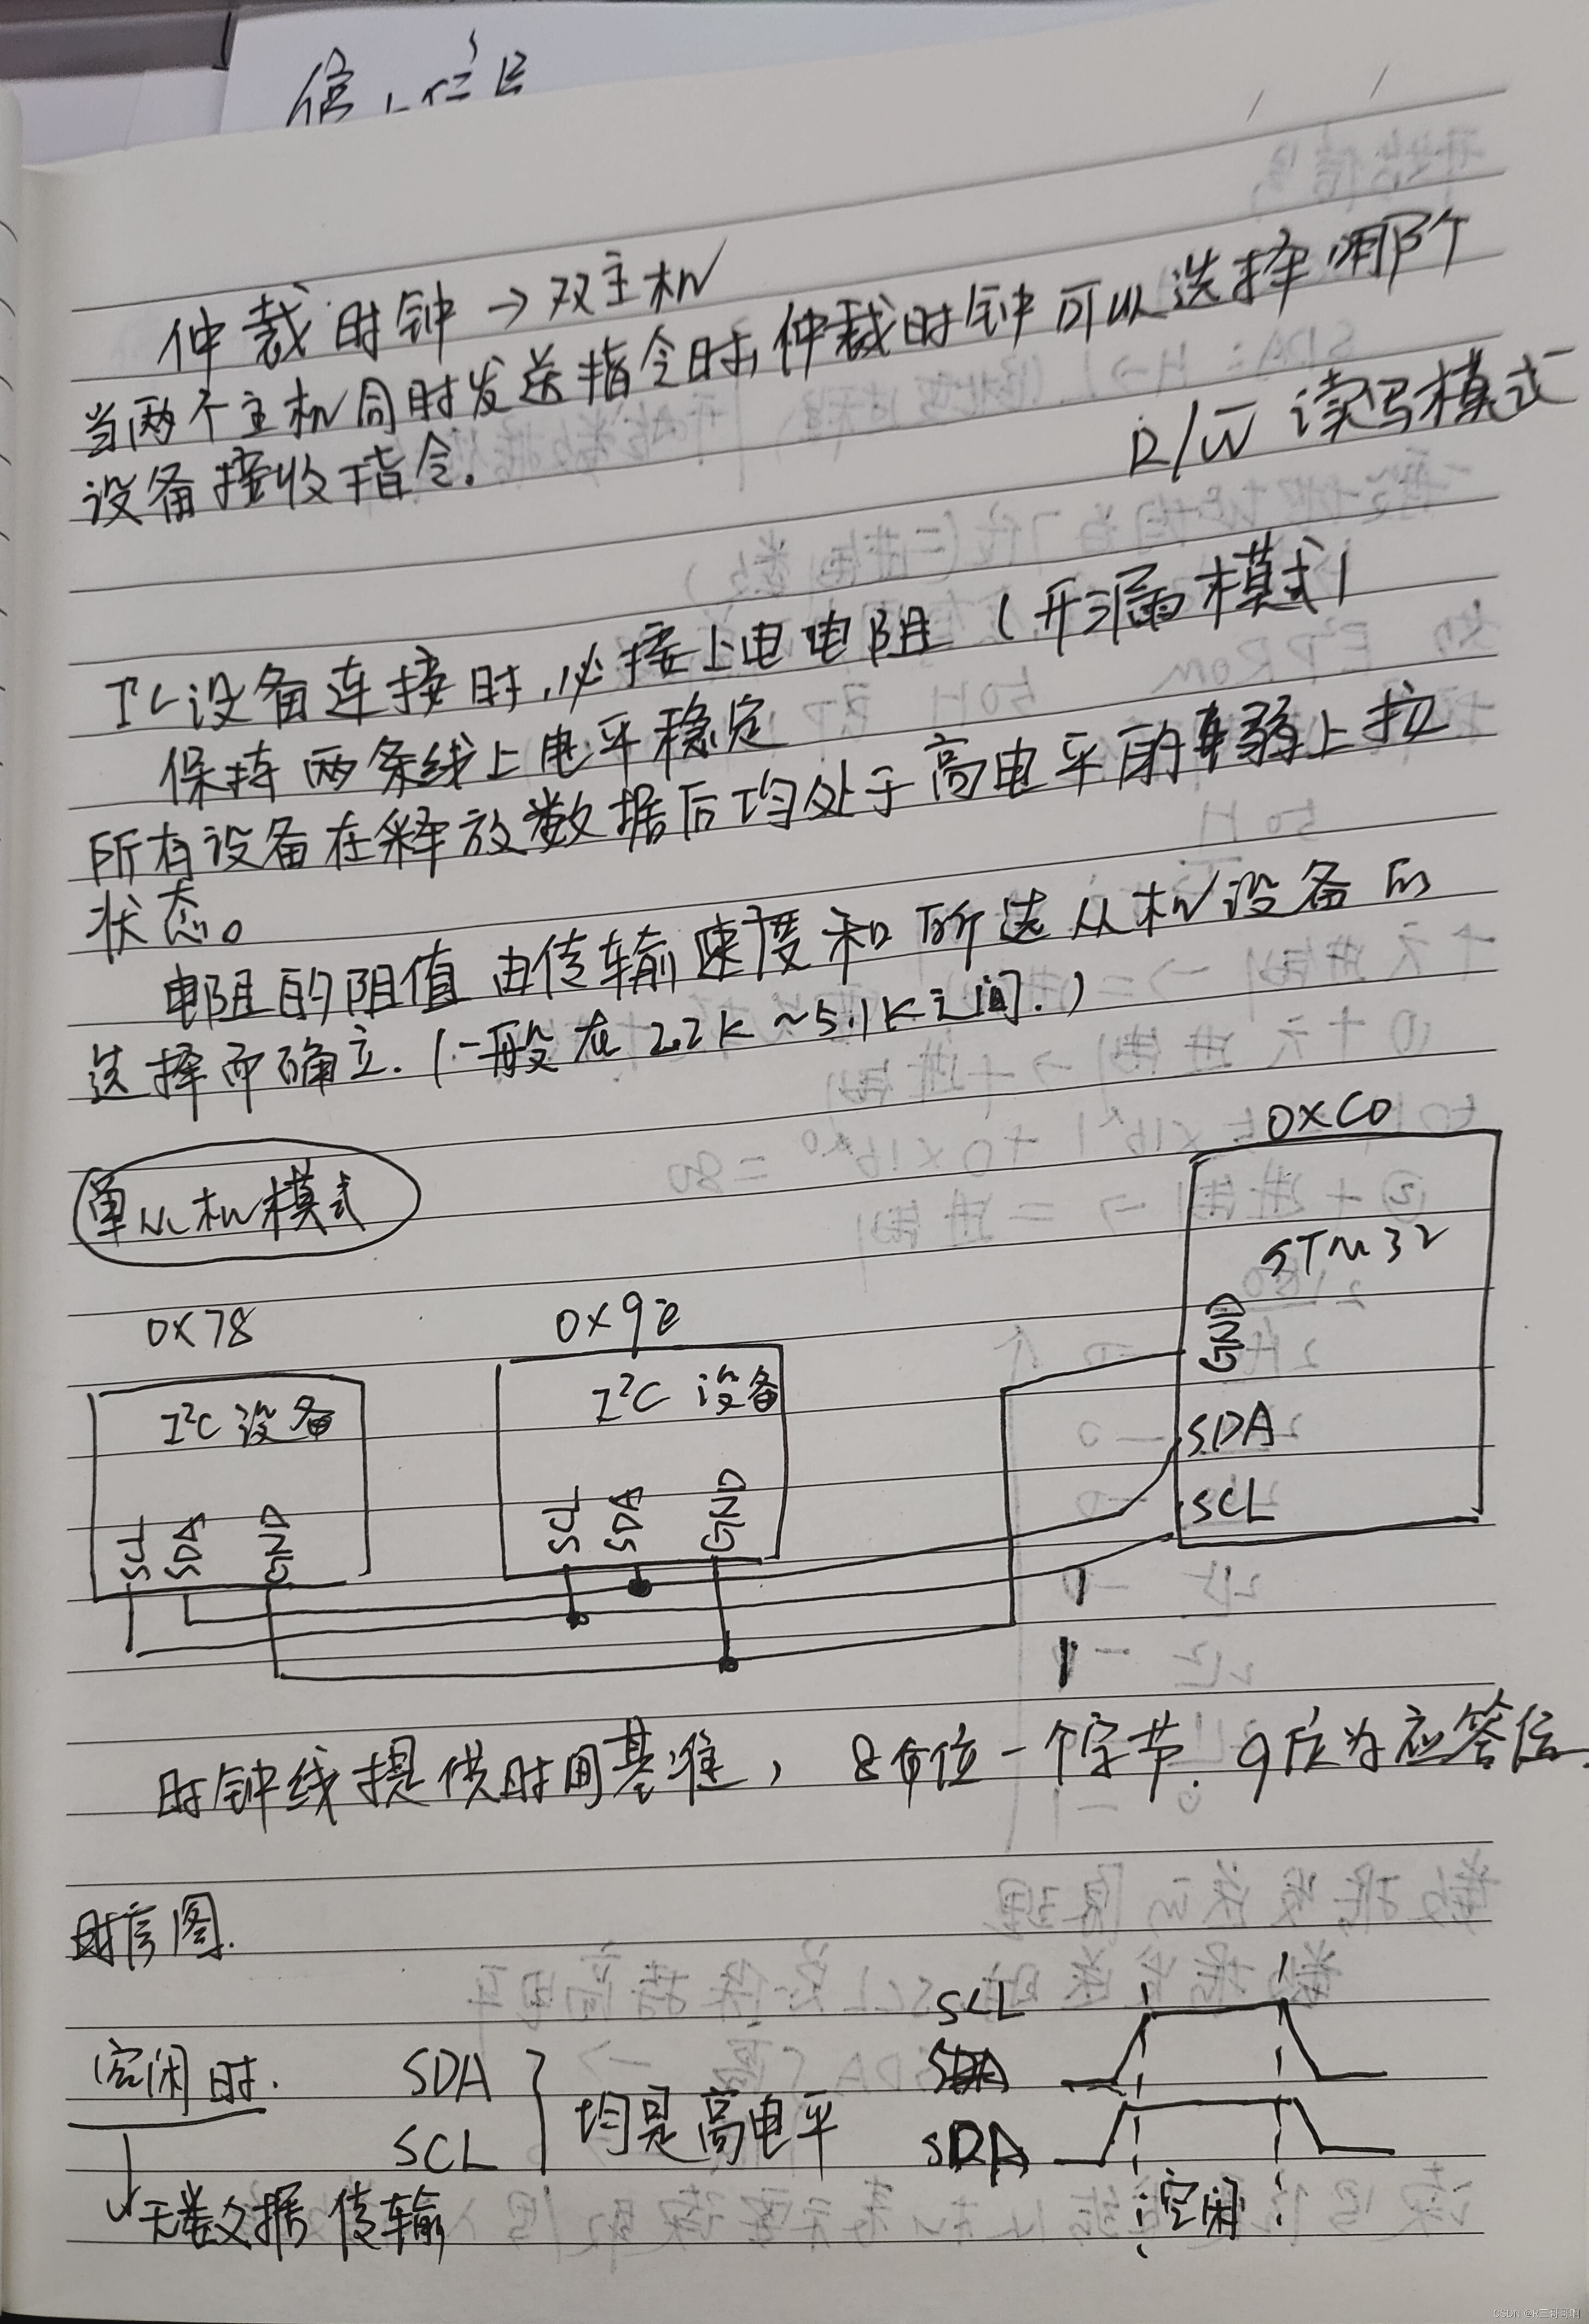 仲裁时钟→双主机
当两个主机同时发送指令时,仲裁时钟可以选择哪个
设备接收指令.
R/W̅ 读写模式
I²C设备连接时,必接上电电阻(开漏模式)
保持两条线上电平稳定
所有设备在释放数据后均处于高电平的弱上拉
状态。
电阻的阻值由传输速度和所选从机设备的
选择而确立.(一般在2.2K~5.1K之间.)
0XC0
单从机模式
STM32
0X78
0X9e
GND
I²C设备
I²C 设备
SDA
SCL
SCL
SDA
GND
SCL
SDA
GND
时钟线提供时间基准, 8位一个字节.9位为应答位.
时序图.
SCL
空闲时.
SDA
SCL
均是高电平
SDA
空闲
无数据传输
CSDN @R三哥哥啊